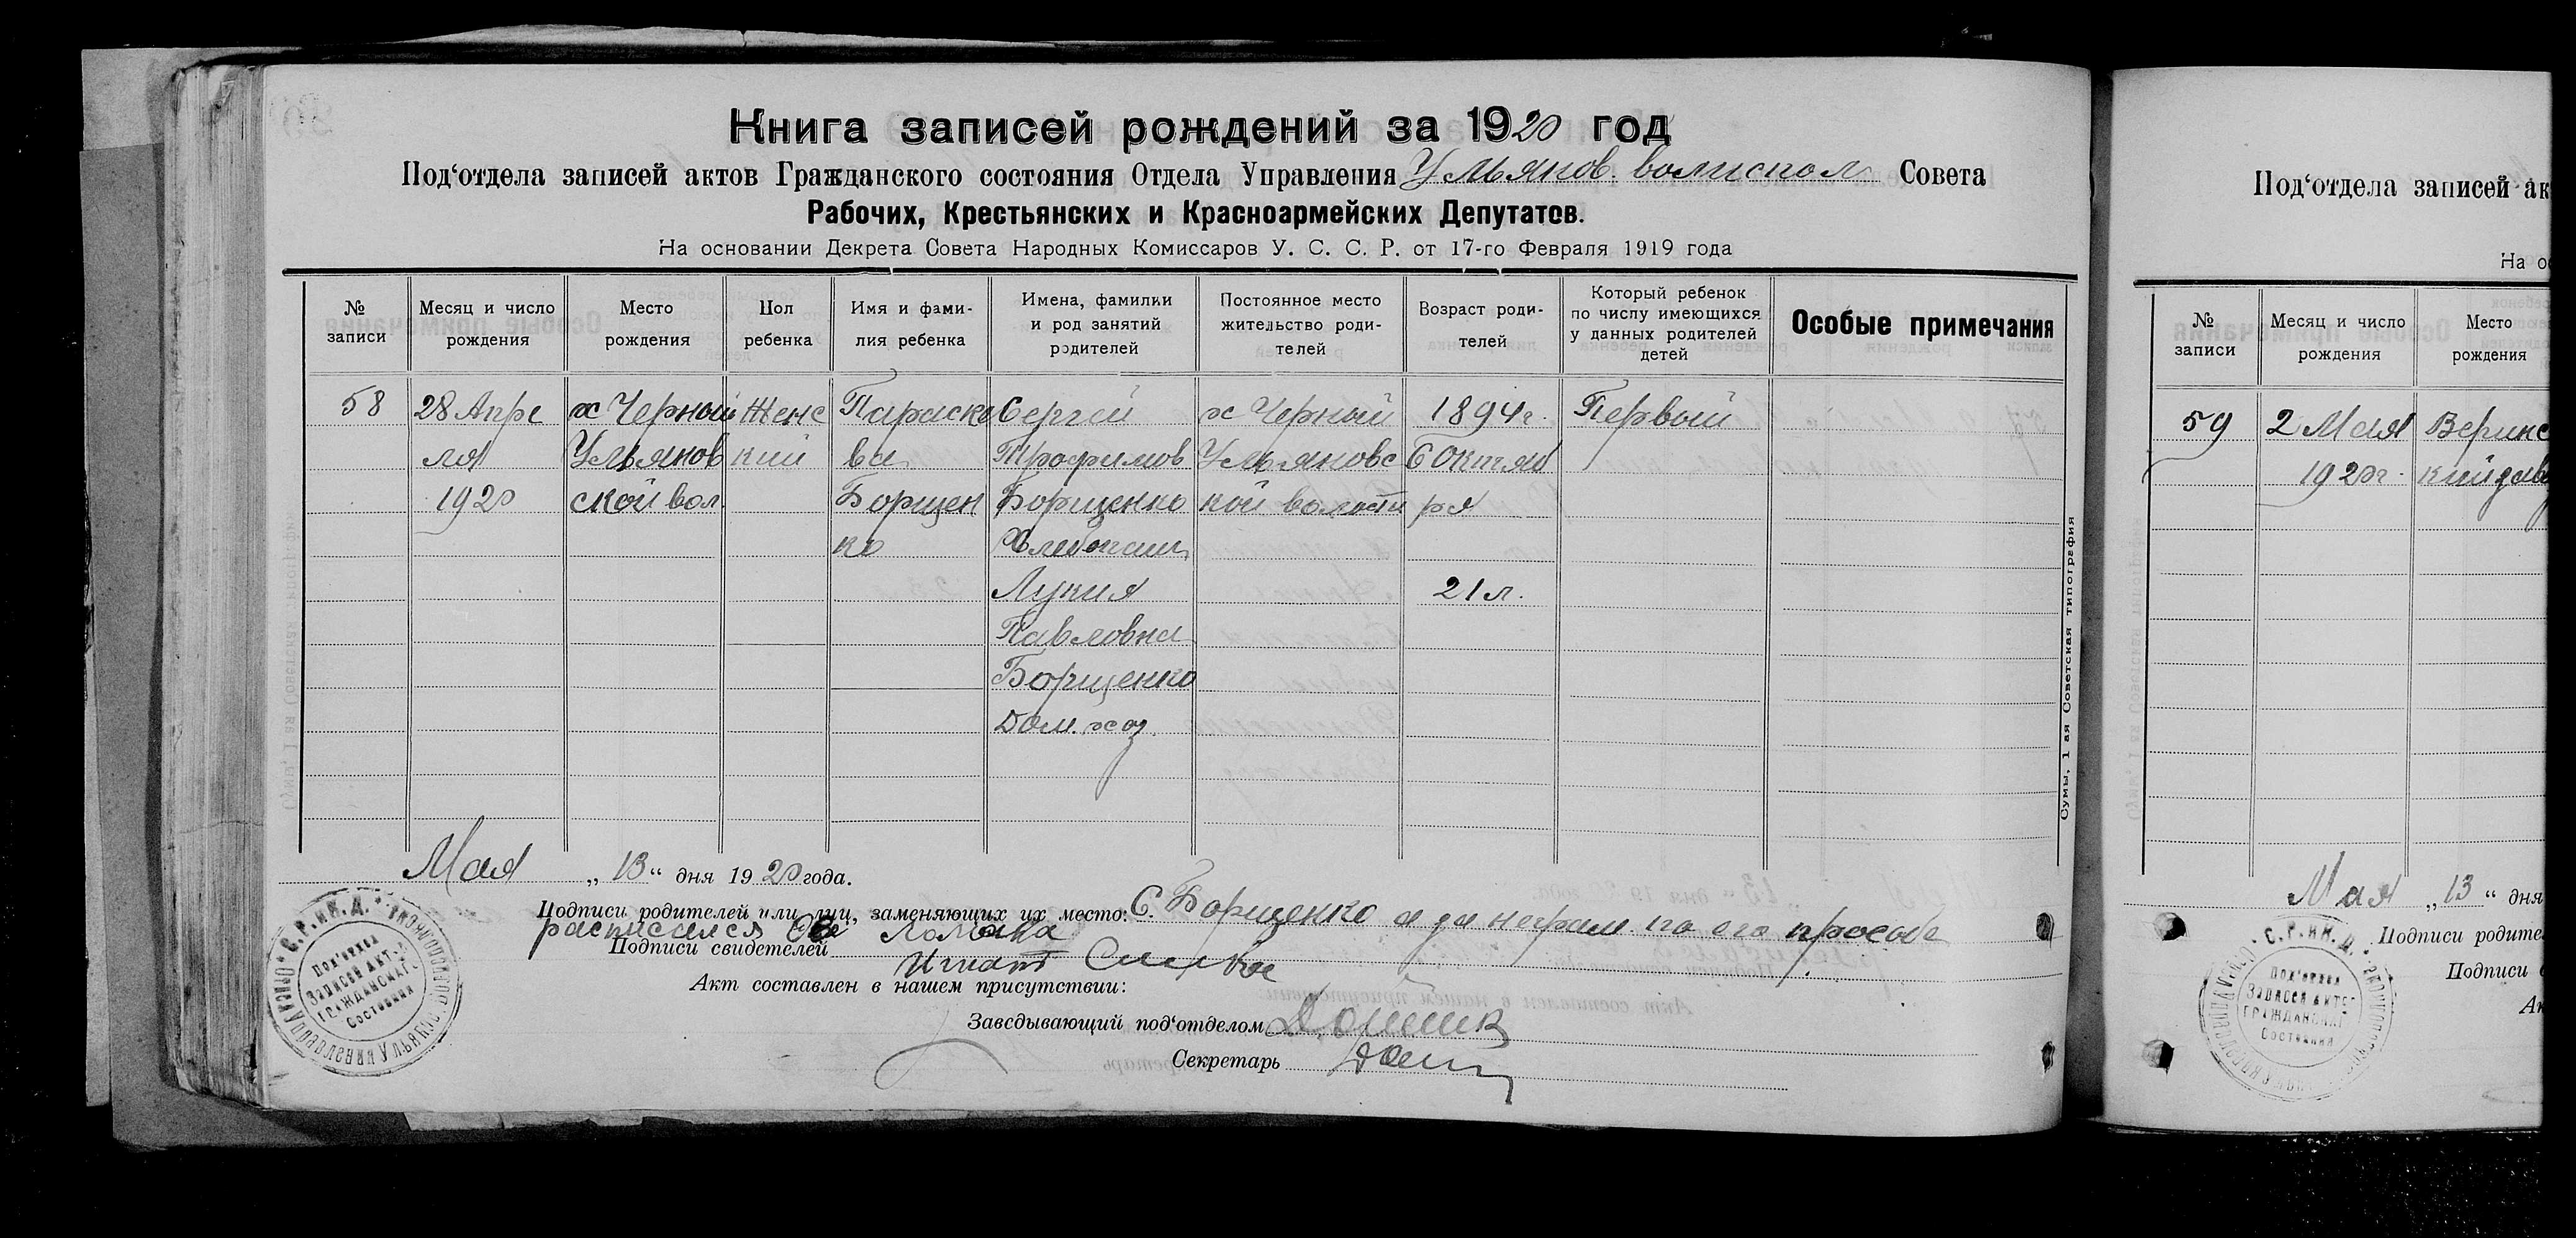 Книга записей рождений за 1920 год
Под‘отдела записей актов Гражданского состояния Отдела Управления Ульянов. волиспол Совета
Рабочих, Крестьянских и Красноармейских Депутатов.
На основании Декрета Совета Народных Комиссаров У. С. С. Р. от 17-го Февраля 1919 года
№ записи
Месяц и число рождения
Место рождения
Пол ребенка
Имя и фами-
лия ребенка
Имена, фамилии
и род занятий
родителей
Постоянное место
жительство роди-
телей
Возраст роди-
телей
Который ребенок
по числу имеющихся
у данных родителей
детей
Особые примечания
58
28 Апре
ля
1920
х Черный
Ульянов
ской вол.
Женс
кий
Параске
ва
Борщен
ко
Сергей
Трофимов
Борщенко
Хлебопаш
Лукия
Павловна
Борщенко
Дом. хоз.
х Черный
Ульяновс
кой волости
1894г.
6 Октяб
ря
21 л.
Первый
Сумы, 1 ая Советская типография
Мая „13“ дня 1920 года.
Подписи родителей или лиц, заменяющих их место: С. Борщенко а за неграм по его прозбе
расписался
Подписи свидетелей Игнат
Акт составлен в нашем присутствии:
Заведывающий под‘отделом
Секретарь
С.Р. и К.Д.
Под'отдел
Записей акт.
Гражданског
Состояния
Под‘отдела записей ак
На о
№ записи
Месяц и число рождения
Место рождения
59
2 Мая
1920г.
Веринс
кий
Мая „13“ дня
Подписи родите
Подписи
Ак
С.Р. и К.Д.
Под'отдел
Записей акт.
Гражданског
Состояния